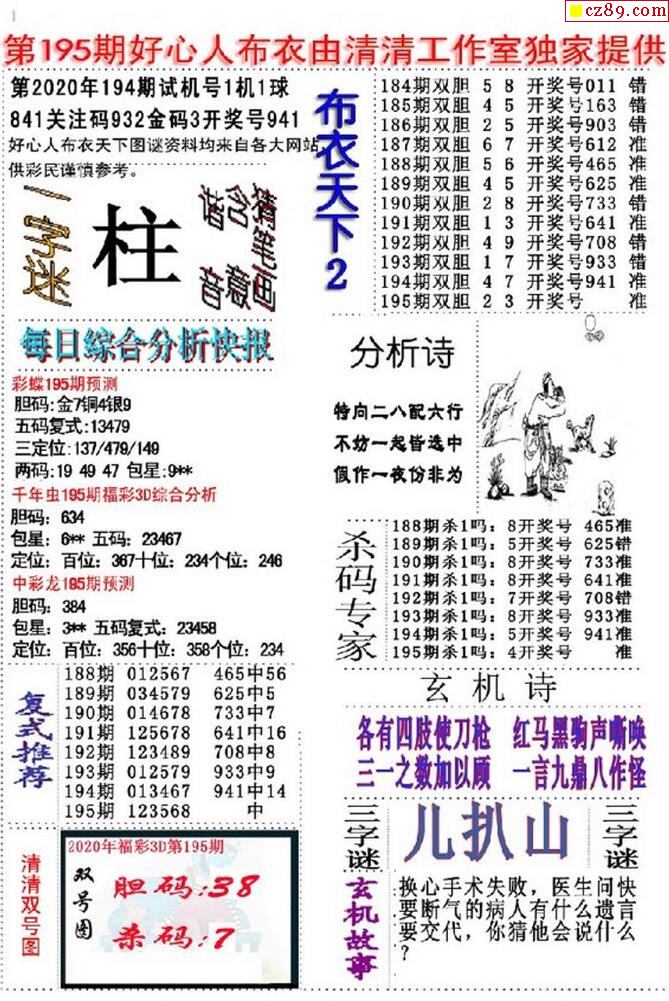 cz89.com
第195期好心人布衣由清清工作室独家提供
第2020年194期试机号1机1球
841关注码932金码3开奖号941
好心人布衣天下图谜资料均来自各大网站,
供彩民谨慎参考。
一字谜
柱
猜笔画
含意
谐音
布衣天下2
184期双胆 5 8 开奖号011 错
185期双胆 4 5 开奖号163 错
186期双胆 2 5 开奖号903 错
187期双胆 6 7 开奖号612 准
188期双胆 5 6 开奖号465 准
189期双胆 4 5 开奖号625 准
190期双胆 2 8 开奖号733 错
191期双胆 1 3 开奖号641 准
192期双胆 4 9 开奖号708 错
193期双胆 1 7 开奖号933 错
194期双胆 4 7 开奖号941 准
195期双胆 2 3 开奖号 准
每日综合分析快报
彩蝶195期预测
胆码:金7铜4银9
五码复式:13479
三定位:137/479/149
两码:19 49 47 包星:9**
千年虫195期福彩3D综合分析
胆码：634
包星：6** 五码：23467
定位：百位：367十位：234个位：246
中彩龙195期预测
胆码：384
包星：3** 五码复式：23458
定位：百位：356十位：358个位：234
分析诗
特向二八配六行
不妨一起皆选中
假作一夜份非为
杀码专家
188期杀1吗：8开奖号 465准
189期杀1吗：5开奖号 625错
190期杀1吗：8开奖号 733准
191期杀1吗：8开奖号 641准
192期杀1吗：7开奖号 708错
193期杀1吗：8开奖号 933准
194期杀1吗：5开奖号 941准
195期杀1吗：4开奖号 准
复式推荐
188期 012567 465中56
189期 034579 625中5
190期 014678 733中7
191期 125678 641中16
192期 123489 708中8
193期 012579 933中9
194期 013467 941中14
195期 123568 中
玄机诗
各有四肢使刀枪 红马黑驹声嘶唤
三一之数加以顾 一言九鼎八作怪
三字谜
儿扒山
三字谜
清清双号图
2020年福彩3D第195期
双号图
胆码:38
杀码:7
玄机故事
换心手术失败，医生问快
要断气的病人有什么遗言
要交代，你猜他会说什么
？